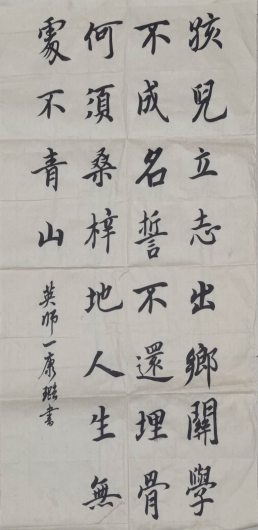 孩兒立志出鄉關學
不成名誓不還埋骨
何須桑梓地人生無
處不青山
英師一康